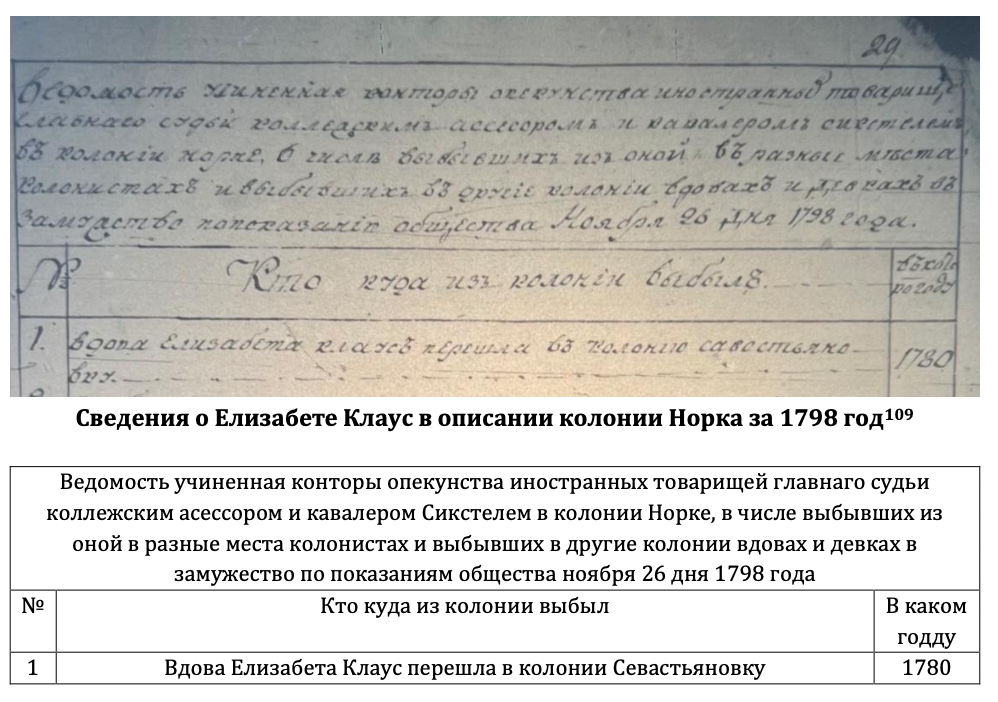 29
Ведомость учиненная конторы опекунства иностранныхъ товарище
главнаго судьи коллежскимъ асессоромъ и кавалеромъ сикстелемъ
въ колонiи норке, О числѣ выбывшихъ изъ оной въ разные мѣста
колонистахъ и выбывшихъ въ другiе колонiи вдовахъ и дѣвкахъ въ
замужство попоказанiю общества Ноября 26 дня 1798 года.
№ Кто куда изъ колонiи выбылъ. въ кото
ро годѣ
1. вдова елизабета клаусъ перешла въ колонiю савостьяно-
вку. 1780
Сведения о Елизабете Клаус в описании колонии Норка за 1798 год¹⁰⁹
Ведомость учиненная конторы опекунства иностранных товарищей главнаго судьи
коллежским асессором и кавалером Сикстелем в колонии Норке, в числе выбывших из
оной в разные места колонистах и выбывших в другие колонии вдовах и девках в
замужество по показаниям общества ноября 26 дня 1798 года
№ Кто куда из колонии выбыл В каком
годду
1 Вдова Елизабета Клаус перешла в колонии Севастьяновку 1780